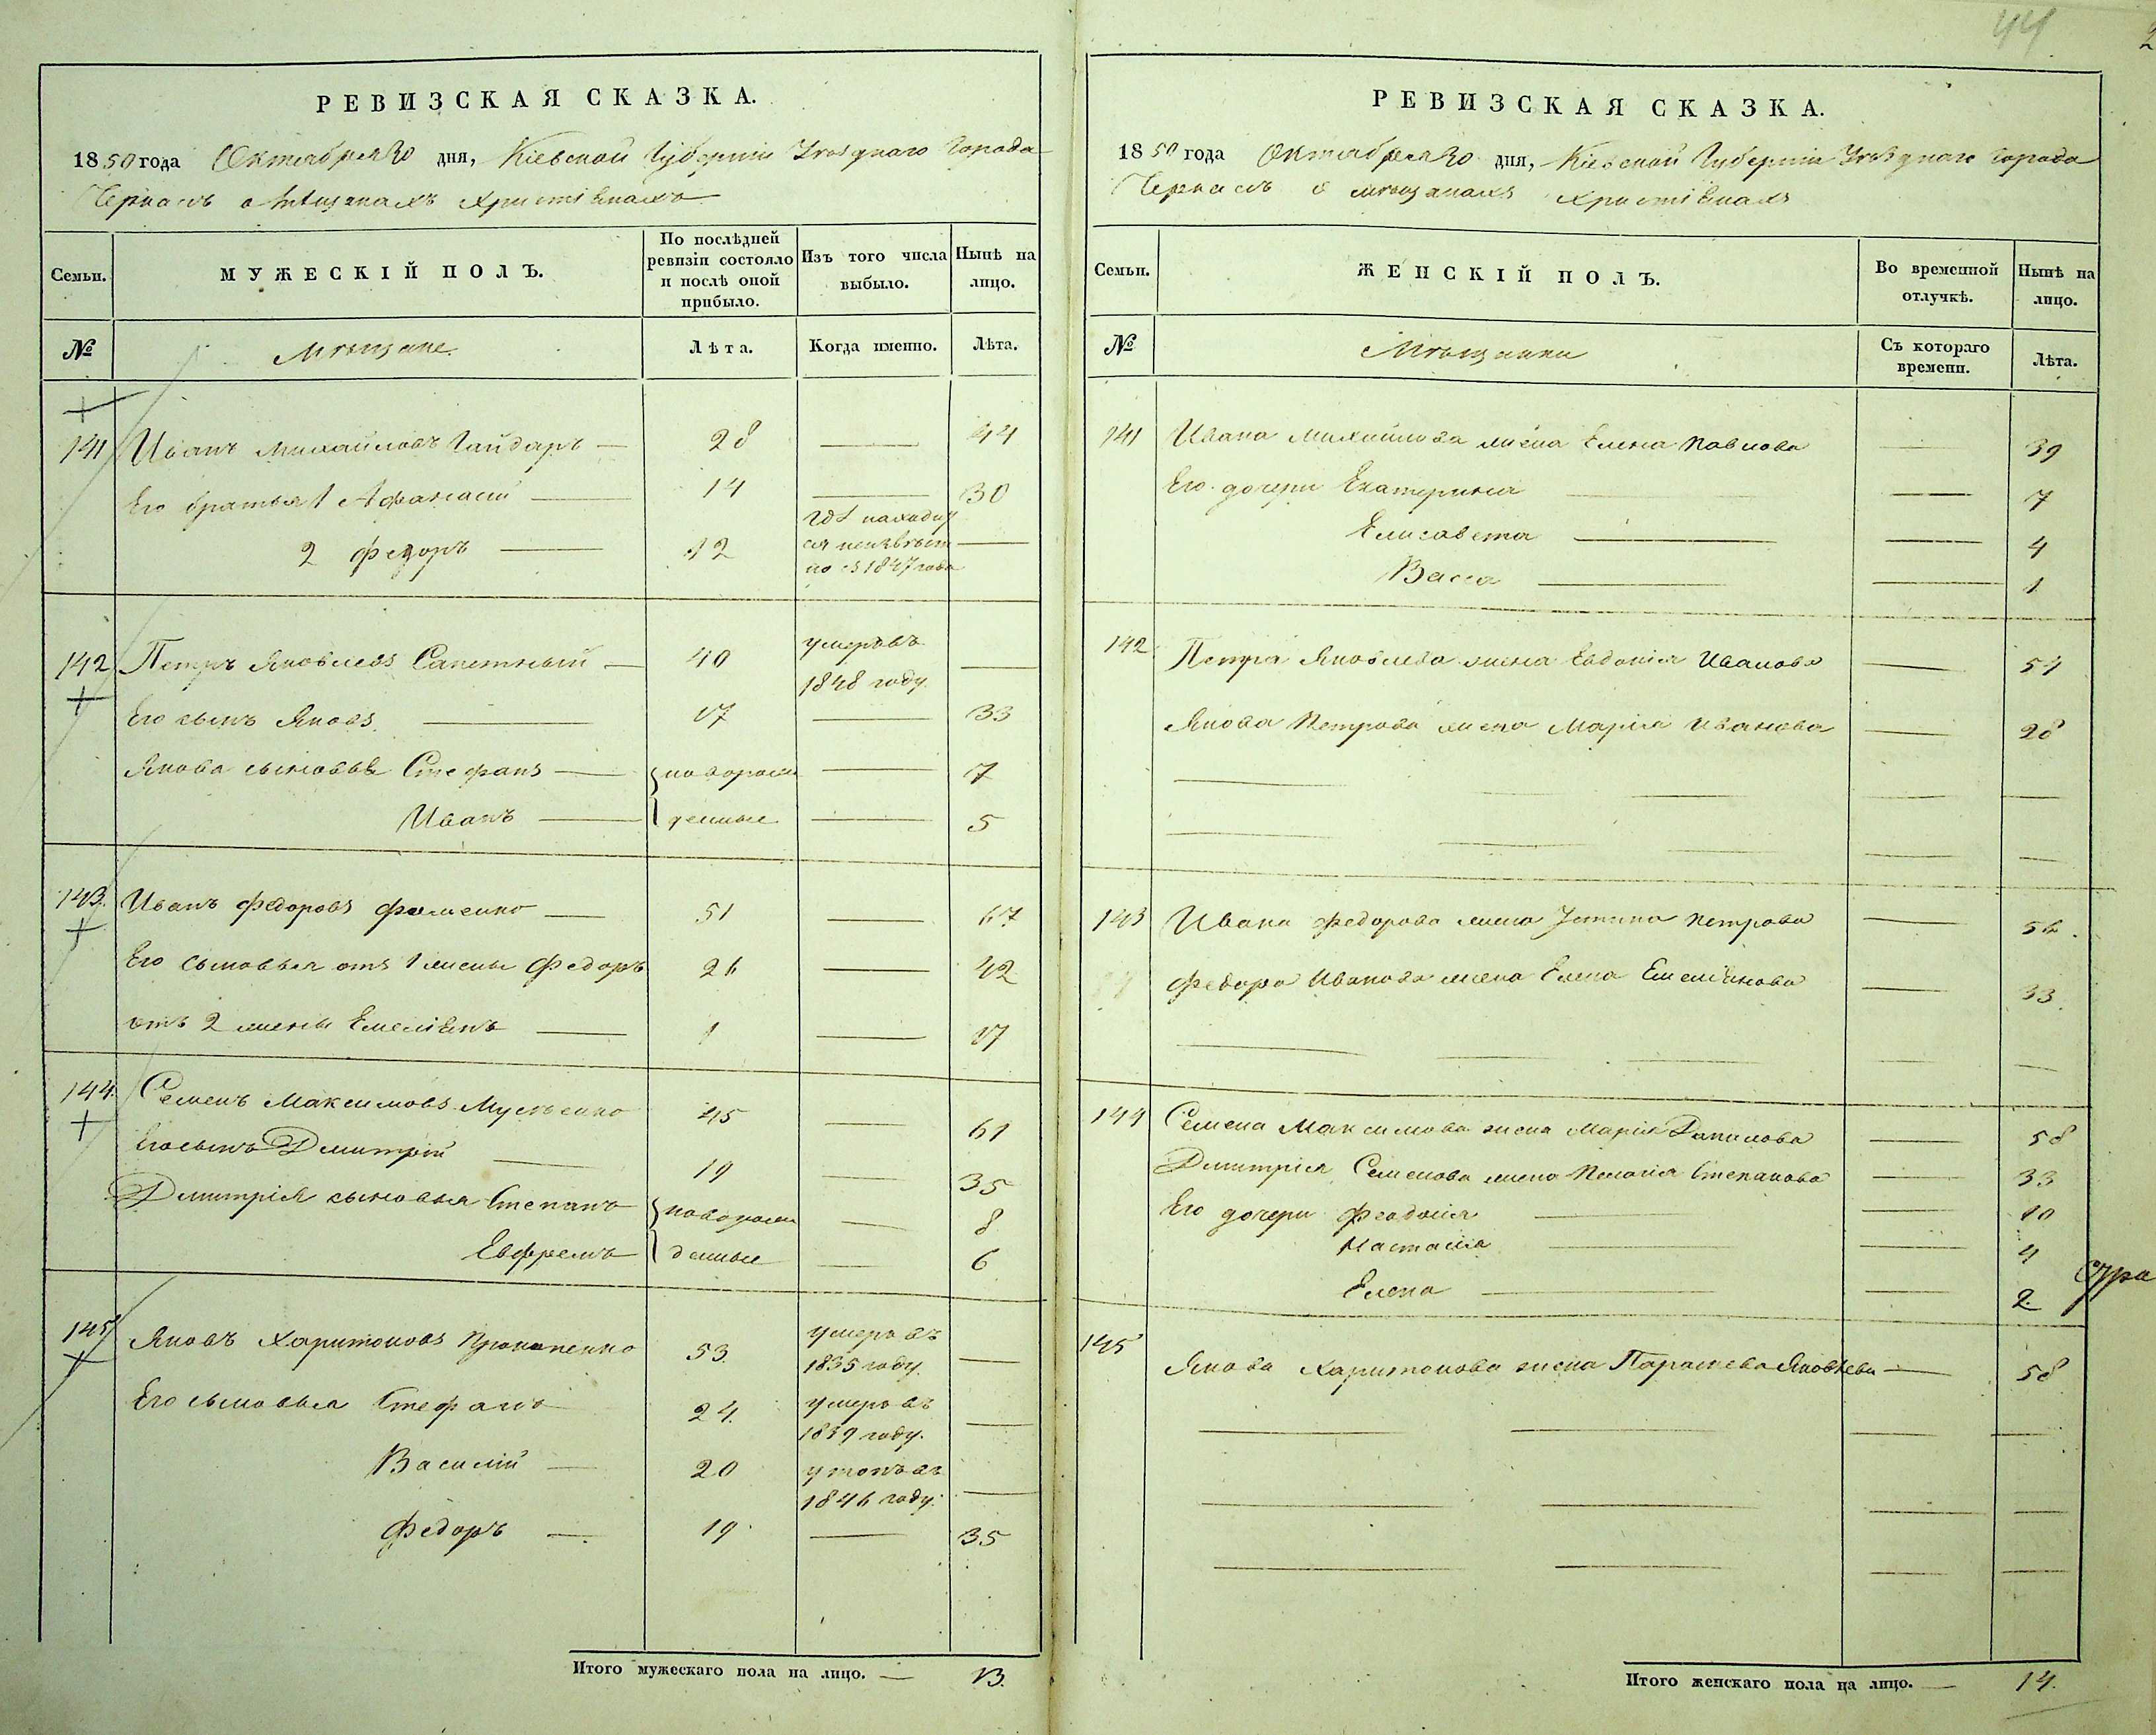 44
РЕВИЗСКАЯ СКАЗКА.
1850 года Октября 30 дня, Кіевской Губерніи Уѣзднаго Города
Черкасъ о Мѣщанахъ Христіянахъ
Семьи.
МУЖЕСКІЙ ПОЛЪ.
По послѣдней ревизіи состояло и послѣ оной прибыло.
Изъ того числа выбыло.
Нынѣ на лицо.
№
Мѣщане.
Лѣта.
Когда именно.
Лѣта.
141 Иванъ Михайловъ Гайдаръ — 28 — 44
Его братья 1 Афанасій — 14 — 30
2 Федоръ — 12 гдѣ находит
ся неизвѣст —
но съ 1847 года
142 Петръ Яковлевъ Сапетный — 40 умеръ въ —
1848 году.
Его сынъ Яковъ. — 17 — 33
Якова сыновья Стефанъ — новорож — 7
Иванъ — денные — 5
143. Иванъ Федоровъ Фоменко — 51 — 67
Его сыновья отъ 1 жены Федоръ 26 — 42
отъ 2 жены Емеліянъ — 1 — 17
144. Семенъ Максимовъ 45 — 61
Его сынъ Дмитрій — 19 — 35
Дмитрія сыновья Степанъ новорож — 8
Евфремъ денные — 6
145 Яковъ Харитоновъ Прокопенко 53. умеръ въ —
1835 году.
Его сыновья Стефанъ 24. умеръ въ —
1839 году.
Василій — 20 утопъ въ —
1846 году.
Федоръ — 19 — 35
Итого мужескаго пола на лицо. — 13.
РЕВИЗСКАЯ СКАЗКА.
1850 года Октября 30 дня, Кіевской Губерніи Уѣзднаго Города
Черкасъ о мѣщанахъ христіянахъ
Семьи.
ЖЕНСКІЙ ПОЛЪ.
Во временной отлучкѣ.
Нынѣ на лицо.
№
Мѣщанки
Съ котораго времени.
Лѣта.
141 Ивана Михайлова жена Елена Павлова — 39
Его дочери Екатерина — — 7
Елисавета — — 4
Васса — — 1
142 Петра Яковлева жена Евдокія Иванова — 54
Якова Петрова жена Марія Иванова — 28
143 Ивана Федорова жена Устина Петрова — 56.
Федора Иванова жена Елена Емеліянова — 33.
144 Семена Максимова жена Марія Данилова — 58
Дмитрія Семенова жена Пелагія Степанова — 33
Его дочери Феодосія — — 10
Настасія — — 4
Елена — — 2.
145 Якова Харитонова жена Параскева Яковлева — 58
Итого женскаго пола на лицо. — 14.